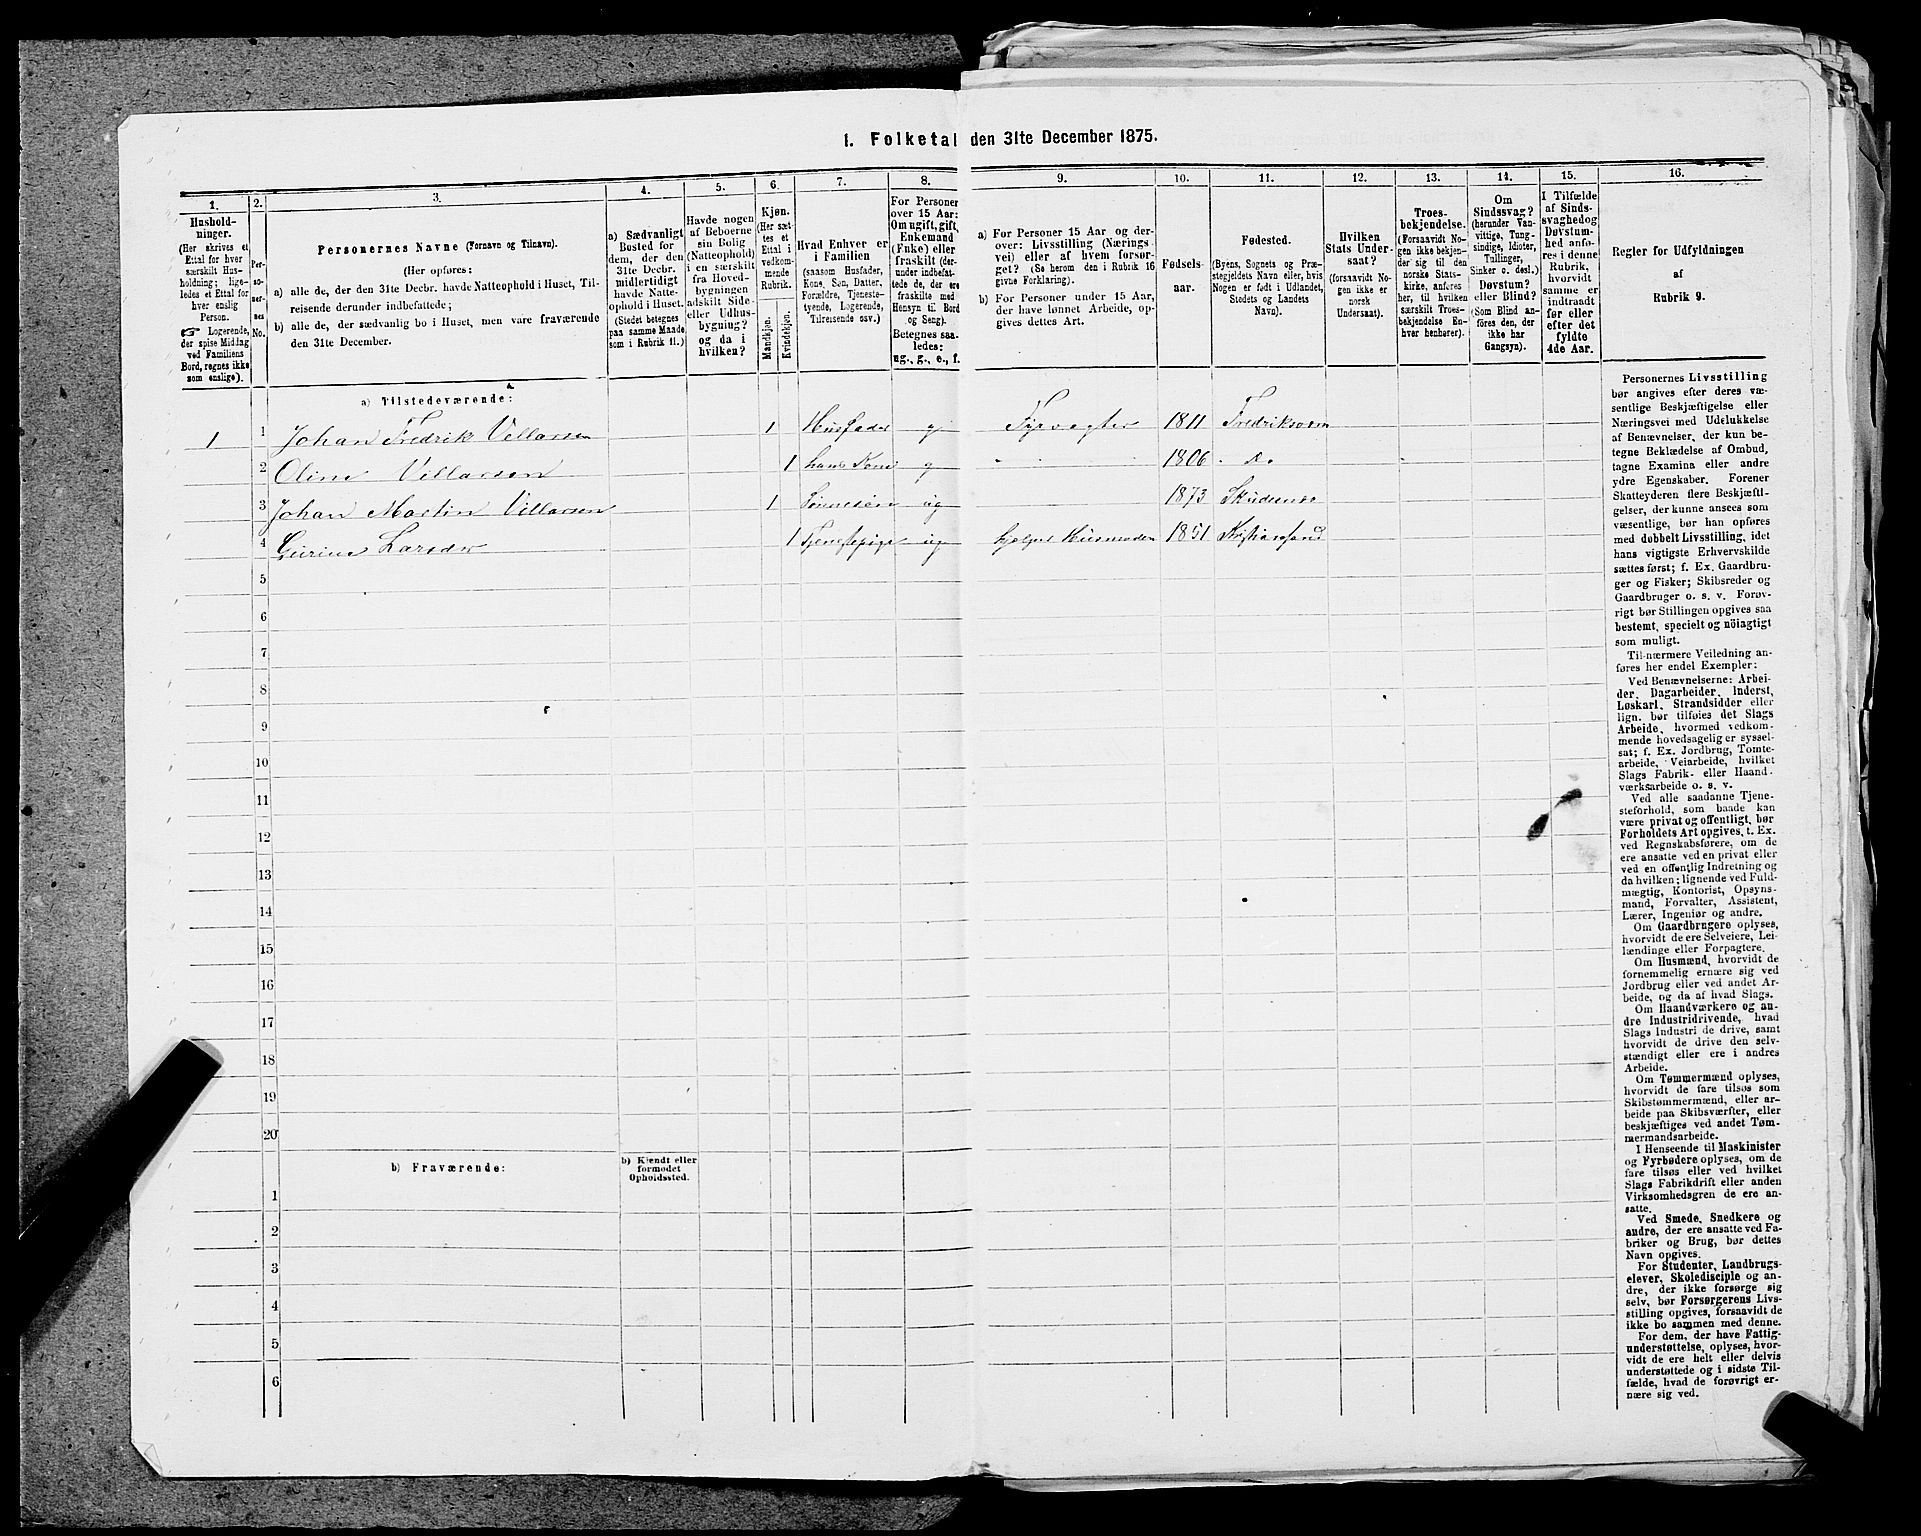 1. Folketal den 31te December 1875.
1.
Hushold-
ninger.
(Her skrives et
Ettal for hver
særskilt Hus-
holdning; lige-
ledes et Ettal for
hver enslig
Person.
☞ Logerende,
der spise Middag
ved Familiens
Bord, regnes ikke
som enslige).
2.
Per-
so-
ner-
nes
No.
3.
Personernes Navne (Fornavn og Tilnavn).
(Her opføres:
a) alle de, der den 31te Decbr. havde Natteophold i Huset, Til-
reisende derunder indbefattede;
b) alle de, der sædvanlig bo i Huset, men vare fraværende
den 31te December.
4.
a) Sædvanligt
Bosted for
dem, der den
31te Decbr.
midlertidigt
havde Natte-
ophold i Huset.
(Stedet betegnes
paa samme Maade
som i Rubrik 11.)
5.
Havde nogen
af Beboerne
sin Bolig
(Natteophold)
i en særskilt
fra Hoved-
bygningen
adskilt Side-
eller Udhus-
bygning?
og da i
hvilken?
6.
Kjøn.
(Her sæt-
tes et
Ettal i
vedkom-
mende
Rubrik.
Mandkjøn.
Kvindekjøn.
7.
Hvad Enhver er
i Familien
(saasom Husfader,
Kone, Søn, Datter,
Forældre, Tjeneste-
tyende, Logerende,
Tilreisende osv.)
8.
For Personer
over 15 Aar:
Om ugift, gift,
Enkemand
(Enke) eller
fraskilt (der-
under indbefat-
tede de, der ere
fraskilte med
Hensyn til Bord
og Seng).
Betegnes saa-
ledes:
ug., g., e., f.
9.
a) For Personer 15 Aar og der-
over: Livsstilling (Nærings-
vei) eller af hvem forsør-
get? (Se herom den i Rubrik 16
givne Forklaring).
b) For Personer under 15 Aar,
der have lønnet Arbeide, op-
gives dettes Art.
10.
Fødsels-
aar.
11.
Fødested.
(Byens, Sognets og Præ-
stegjeldets Navn eller, hvis
Nogen er født i Udlandet,
Stedets og Landets
Navn).
12.
Hvilken
Stats Under-
saat?
(forsaavidt No-
gen ikke er
norsk
Undersaat).
13.
Troes-
bekjendelse.
(Forsaavidt No-
gen ikke bekjen-
der sig til den
norske Stats-
kirke, anføres
her, til hvilken
særskilt Troes-
bekjendelse En-
hver henhører).
14.
Om
Sindssvag?
(herunder Van-
vittige, Tung-
sindige, Idioter,
Tullinger,
Sinker o. desl.).
Døvstum?
eller Blind?
(Som Blind an-
føres den, der
ikke har
Gangsyn).
15.
I Tilfælde
af Sinds-
svaghed og
Døvstum-
hed anfø-
res i denne
Rubrik,
hvorvidt
samme er
indtraadt
før eller
efter det
fyldte
4de Aar.
16.
Regler for Udfyldningen
af
Rubrik 9.
a) Tilstedeværende:
1 1 Johan Fredrik Villarsen 1 Husfader g Fyrvogter 1811 Fredriksværn
2 Oline Villarsen 1 hans Kone g 1806 Do
3 Johan Martin Villarsen 1 Sønnesøn ug 1873 Skudesnæs
4 Larsdtr 1 Tjenestepige ug hjelper Husmoderen 1851 Kristianssand
5
6
7
8
9
10
11
12
13
14
15
16
17
18
19
20
b) Fraværende:
b) Kjendt eller
formodet
Opholdssted.
1
2
3
4
5
6
Personernes Livsstilling
bør angives efter deres væ-
sentlige Beskjæftigelse eller
Næringsvei med Udelukkelse
af Benævnelser, der kun be-
tegne Beklædelse af Ombud,
tagne Examina eller andre
ydre Egenskaber. Forener
Skatteyderen flere Beskjæfti-
gelser, der kunne ansees som
væsentlige, bør han opføres
med dobbelt Livsstilling, idet
hans vigtigste Erhvervskilde
sættes først; f. Ex. Gaardbru-
ger og Fisker; Skibsreder og
Gaardbruger o. s. v. Forøv-
rigt bør Stillingen opgives saa
bestemt, specielt og nöiagtigt
som muligt.
Til nærmere Veiledning an-
føres her endel Exempler:
Ved Benævnelserne: Arbei-
der, Dagarbeider, Inderst,
Løskarl, Strandsidder eller
lign. bør tilføies det Slags
Arbeide, hvormed vedkom-
mende hovedsagelig er syssel-
sat; f. Ex. Jordbrug, Tomte-
arbeide, Veiarbeide, hvilket
Slags Fabrik- eller Haand-
værksarbeide o. s. v.
Ved alle saadanne Tjene-
steforhold, som baade kan
være privat og offentligt, bør
Forholdets Art opgives, t. Ex.
ved Regnskabsførere, om de
ere ansatte ved en privat eller
ved en offentlig Indretning og
da hvilken; lignende ved Fuld-
mægtig, Kontorist, Opsyns-
mand, Forvalter, Assistent,
Lærer, Ingeniør og andre.
Om Gaardbrugere oplyses,
hvorvidt de ere Selveiere, Lei-
lændinge eller Forpagtere.
Om Husmænd, hvorvidt de
fornemmelig ernære sig ved
Jordbrug eller ved andet Ar-
beide, og da af hvad Slags.
Om Haandværkere og an-
dre Industridrivende, hvad
Slags Industri de drive, samt
hvorvidt de drive den selv-
stændigt eller ere i andres
Arbeide.
Om Tømmermænd oplyses,
hvorvidt de fare tilsøs som
Skibstømmermænd, eller ar-
beide paa Skibsværfter, eller
beskjæftiges ved andet Tøm-
mermandsarbeide.
I Henseende til Maskinister
og Fyrbødere oplyses, om de
fare tilsøs eller ved hvilket
Slags Fabrikdrift eller anden
Virksomhedsgren de ere an-
satte.
Ved Smede, Snedkere og
andre, der ere ansatte ved Fa-
briker og Brug, bør dettes
Navn opgives.
For Studenter, Landbrugs-
elever, Skoledisciple og an-
dre, der ikke forsørge sig
selv, bør Forsørgerens Livs-
stilling opgives, forsaavidt de
ikke bo sammen med denne.
For dem, der have Fattig-
understøttelse, oplyses, hvor-
vidt de ere helt eller delvis
understøttede og i sidste Til-
fælde, hvad de forøvrigt er-
nære sig ved.